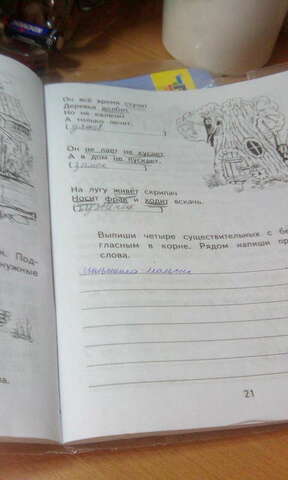 Он всё время стучит
Деревья долбит.
Но не калечит
А только лечит.
(дятел)
Он не лает не кусает.
А в дом не пускает.
(замок)
На лугу живёт скрипач
Носит фрак и ходит вскачь.
(кузнечик)
Выпиши четыре существительных с бе
гласным в корне. Рядом напиши пр
слова.
м. Под-
нужные
а.
21